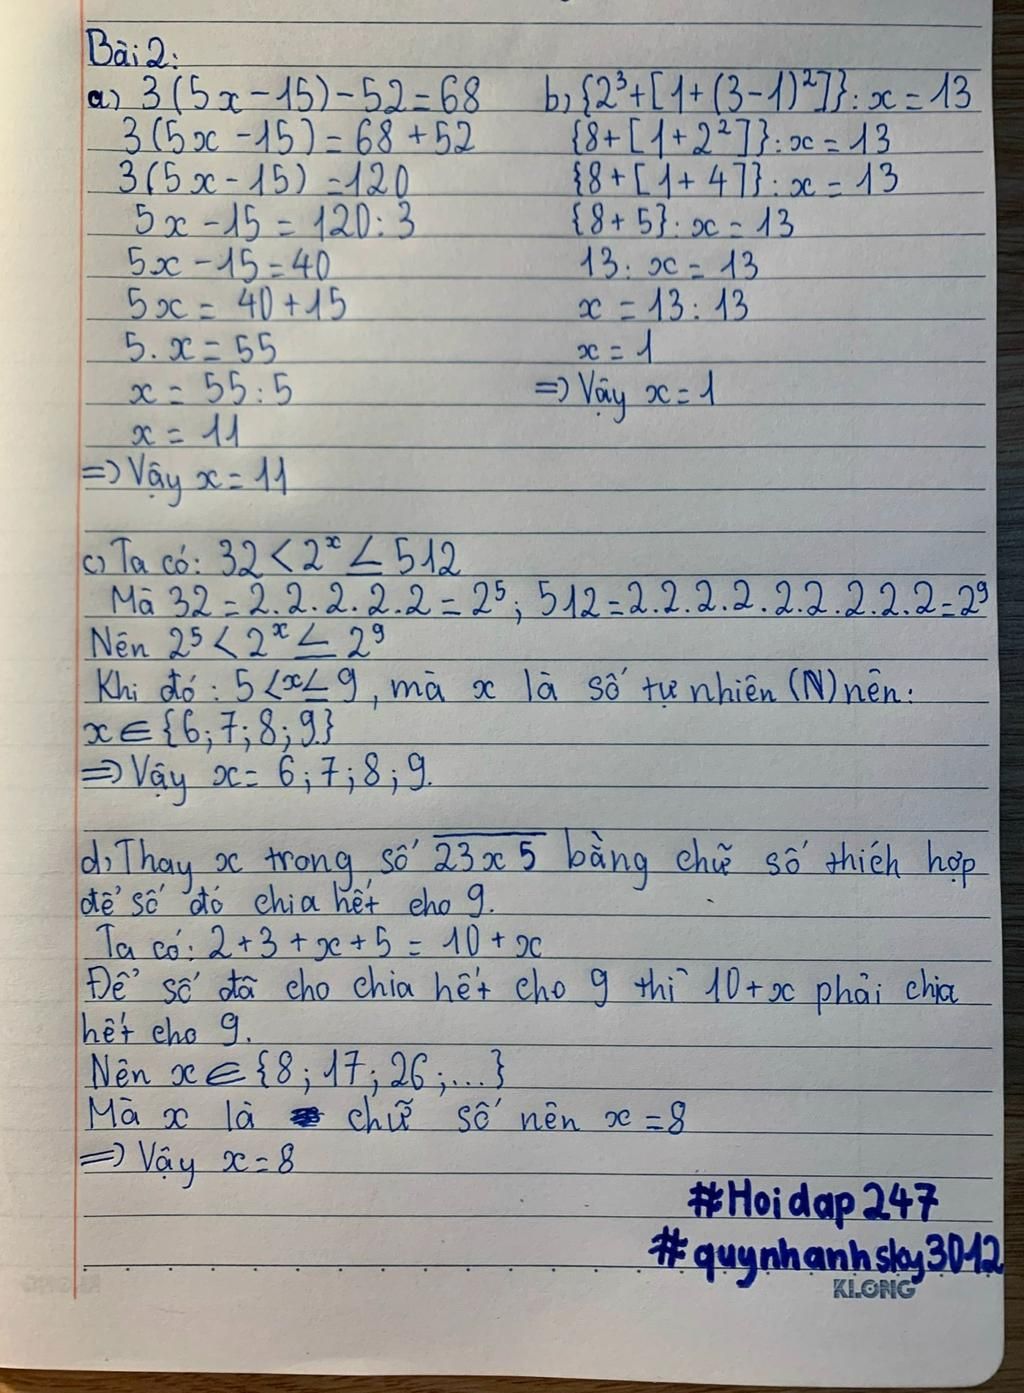 Bài 2:
a) 3(5x-15)-52=68
3(5x-15)=68+52
3(5x-15)=120
5x-15=120:3
5x-15=40
5x=40+15
5.x=55
x=55:5
x=11
=> Vậy x=11
b) {2³+[1+(3-1)²]}:x=13
{8+[1+2²]}:x=13
{8+[1+4]}:x=13
{8+5}:x=13
13:x=13
x=13:13
x=1
=> Vậy x=1
c) Ta có: 32<2ˣ≤512
Mà 32=2.2.2.2.2=2⁵; 512=2.2.2.2.2.2.2.2.2=2⁹
Nên 2⁵<2ˣ≤2⁹
Khi đó: 5<x≤9, mà x là số tự nhiên (N) nên:
x∈{6;7;8;9}
=> Vậy x=6;7;8;9.
d) Thay x trong số 23x5 bằng chữ số thích hợp
để số đó chia hết cho 9.
Ta có: 2+3+x+5=10+x
Để số đã cho chia hết cho 9 thì 10+x phải chia
hết cho 9.
Nên x∈{8;17;26;...}
Mà x là chữ số nên x=8
=> Vậy x=8
#Hoidap247
#quynhanhsky3012
KLONG